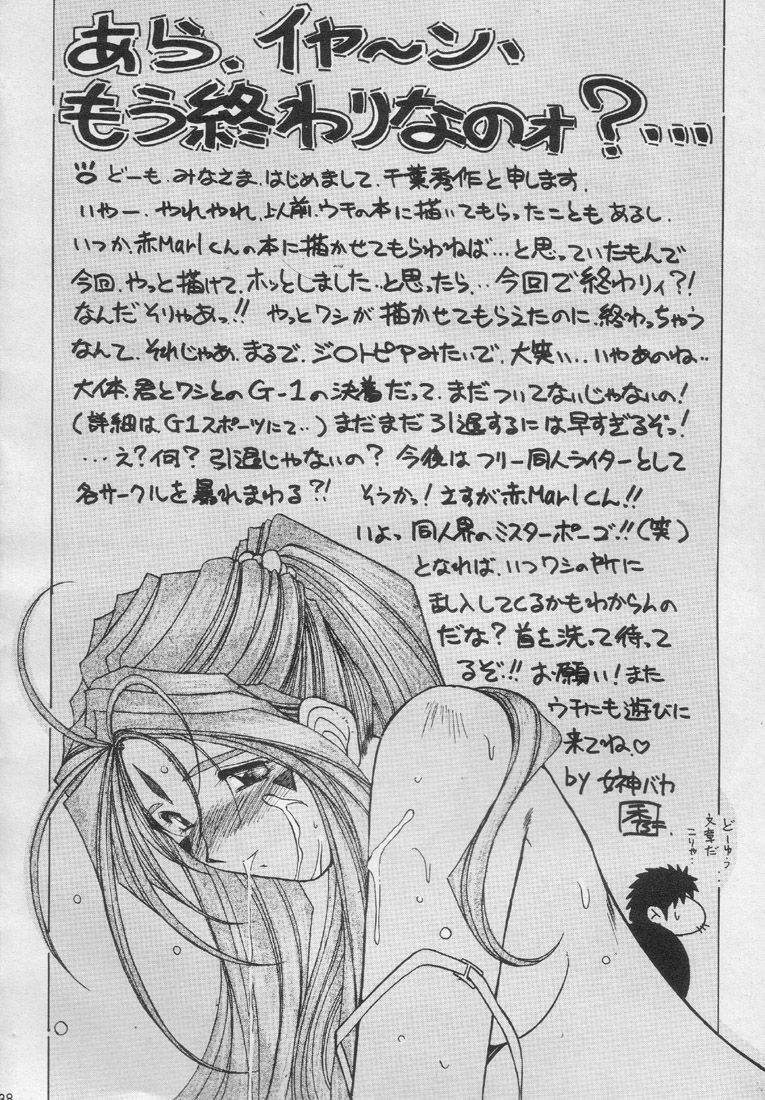 あら、イヤ～ン、
もう終わりなのォ？…
どーも、みなさま、はじめまして、千葉秀作と申します。
いやー、やれやれ、以前、ウチの本に描いてもらったこともあるし、
いつか、赤Marlくんの本に描かせてもらわねば…と思っていたもんで
今回、やっと描けて、ホッとしました…と思ったら、今回で終わりィ？！
なんだそりゃあっ！！ やっとワシが描かせてもらえたのに、終わっちゃう
なんて、それじゃあ、まるで、ジ〇トピアみたいで、大笑い…いやあのね‥
大体、君とワシとのG-1の決着だって、まだついてないじゃないの！
（詳細はG1スポーツにて‥）まだまだ引退するには早すぎるぞっ！
…え？何？引退じゃないの？ 今後はフリー同人ライターとして
各サークルを暴れまわる？！ そうかっ！さすが赤Marlくん！！
いよっ 同人界のミスターポーゴ！！（笑）
となれば、いつワシの所に
乱入してくるかもわからんの
だな？首を洗って待って
るぞ！！お願い！また
ウチにも遊びに
来てね♡
by 女神バカ
秀
どーゆう
文章だ
こりゃ…
38